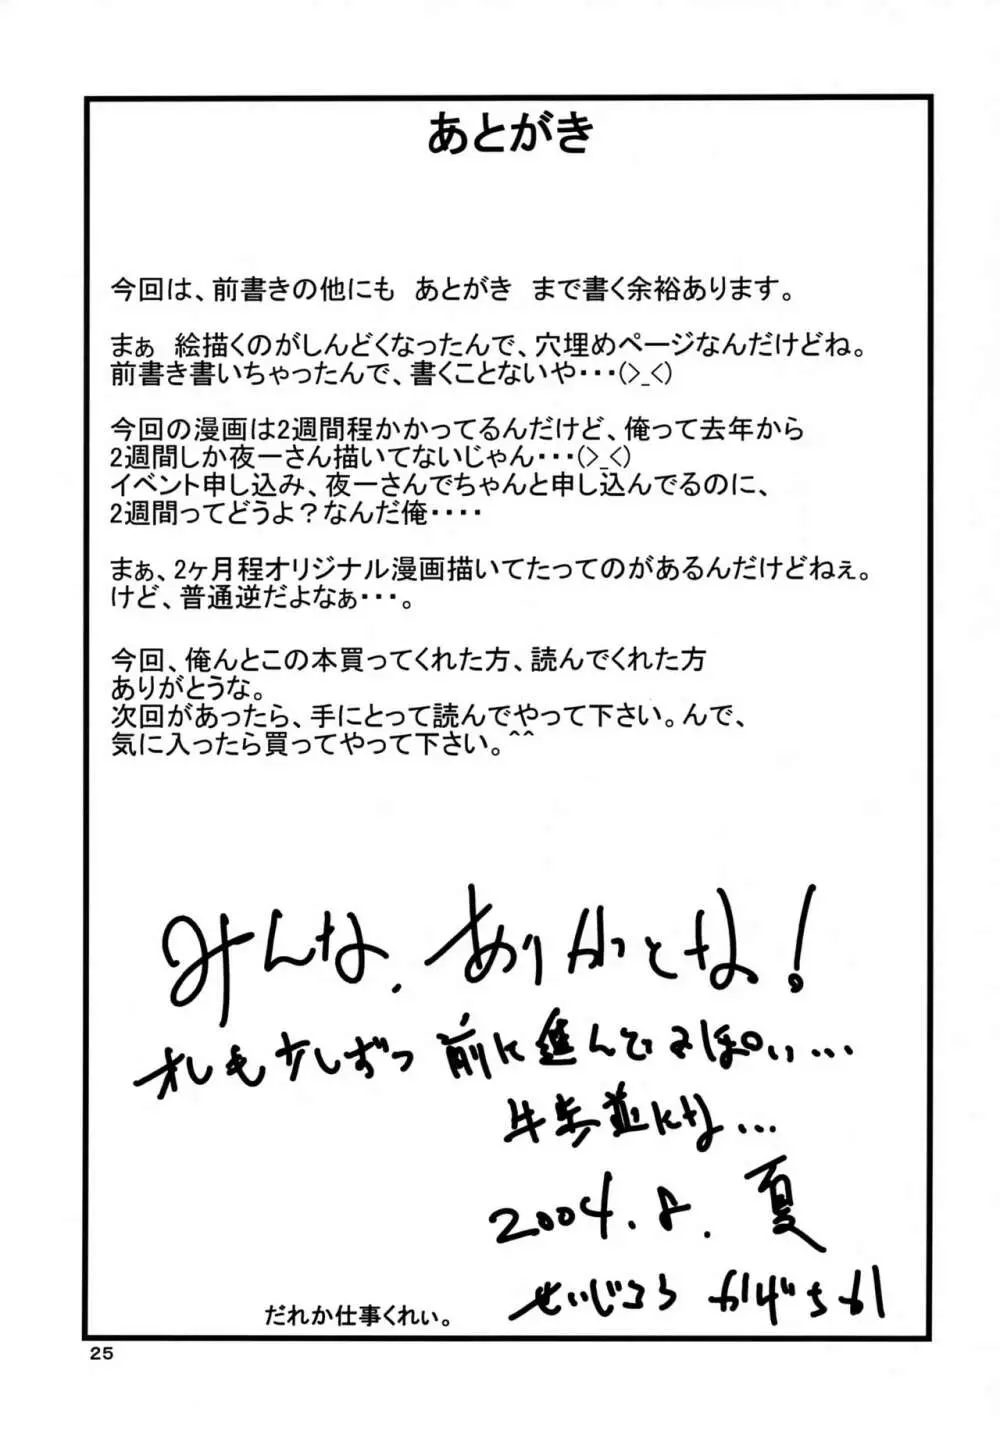 あとがき
今回は、前書きの他にも　あとがき　まで書く余裕あります。
まぁ　絵描くのがしんどくなったんで、穴埋めページなんだけどね。
前書き書いちゃったんで、書くことないや・・・(>_<)
今回の漫画は2週間程かかってるんだけど、俺って去年から
2週間しか夜一さん描いてないじゃん・・・(>_<)
イベント申し込み、夜一さんでちゃんと申し込んでるのに、
2週間ってどうよ？なんだ俺・・・・
まぁ、2ヶ月程オリジナル漫画描いてたってのがあるんだけどねぇ。
けど、普通逆だよなぁ・・・。
今回、俺んとこの本買ってくれた方、読んでくれた方
ありがとうな。
次回があったら、手にとって読んでやって下さい。んで、
気に入ったら買ってやって下さい。^^
みんな、ありがっとな!
オレも少しずつ前に進んでるっぽい...
牛歩並にな...
2004.8.夏
せいじろう かげちか
だれか仕事くれい。
25